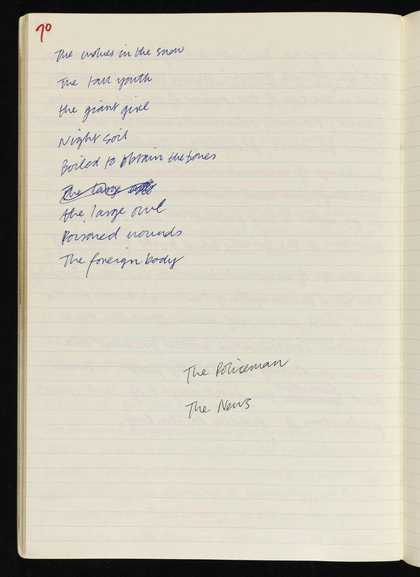 70
The wolves in the snow
The tall youth
the giant girl
Night soil
Boiled to obtain the bones
The large owl
the large owl
Poisoned wounds
The foreign body
The Policeman
The News